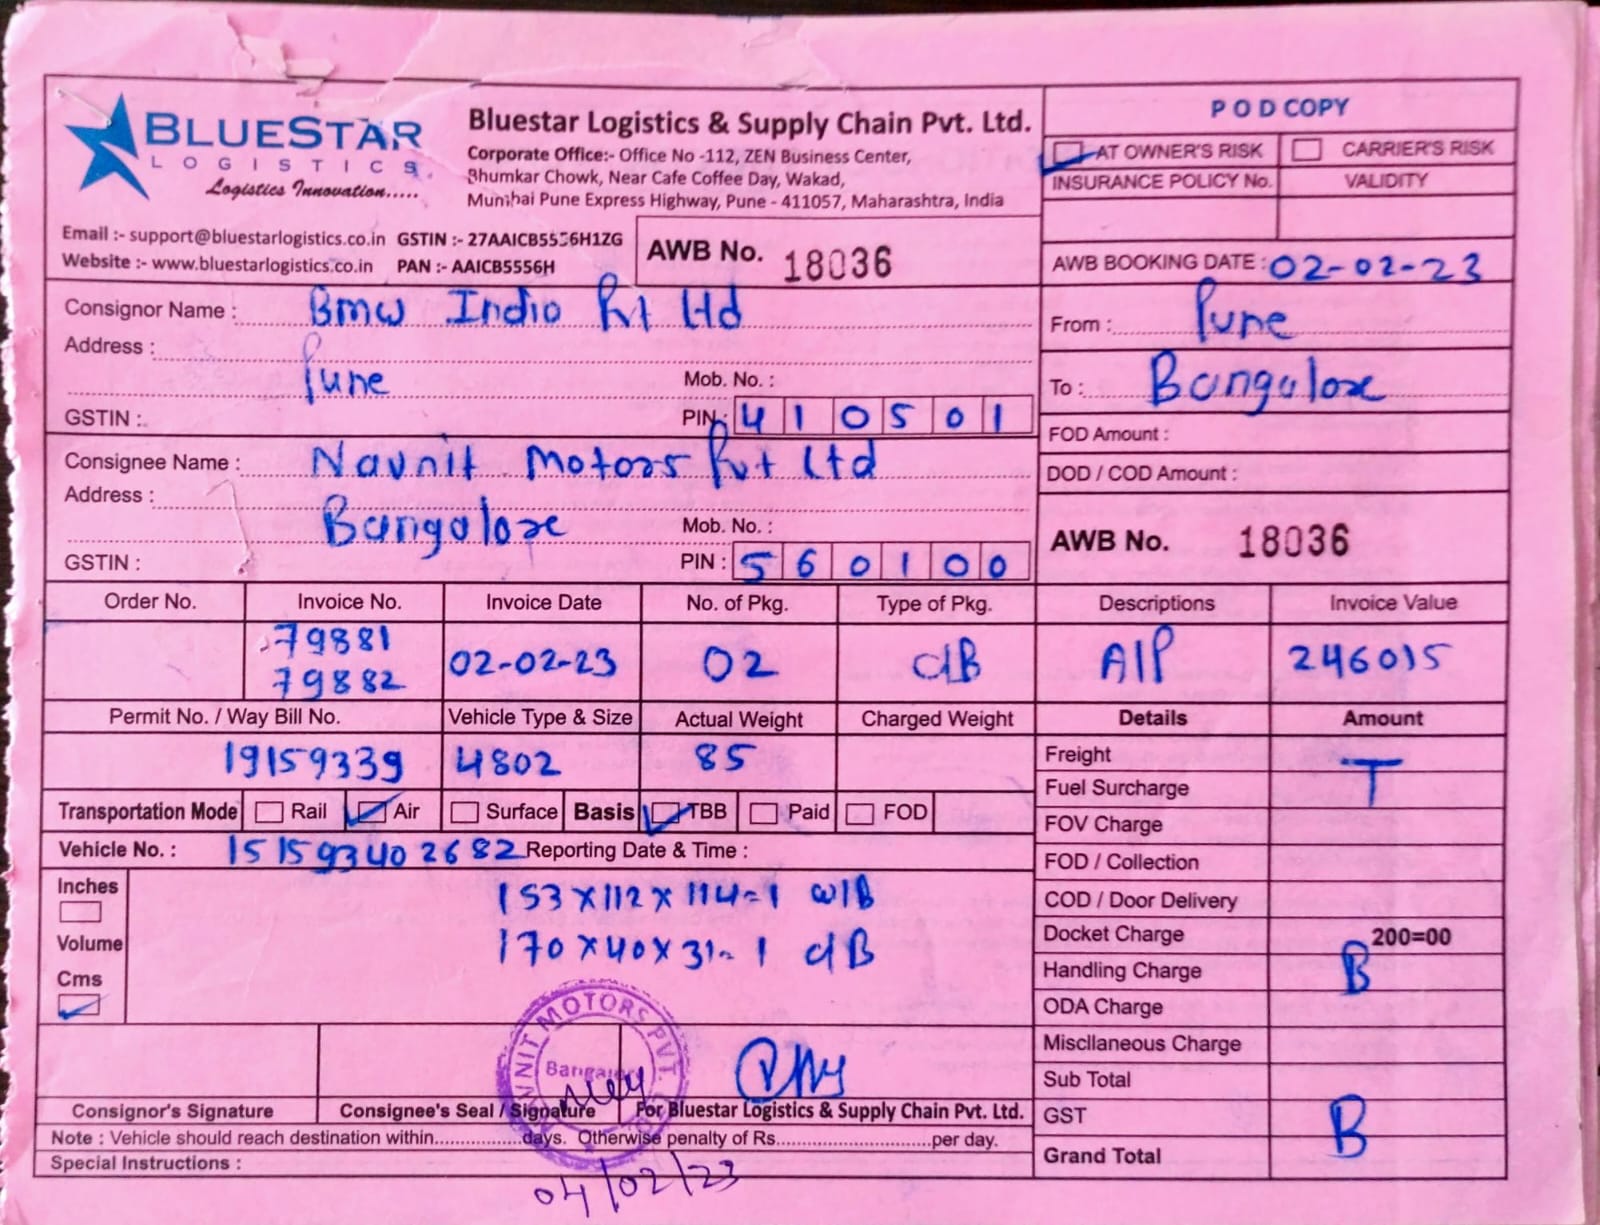 BLUESTAR
LOGISTICS
Logistics Innovation.....
Bluestar Logistics & Supply Chain Pvt. Ltd.
Corporate Office:- Office No -112, ZEN Business Center,
Bhumkar Chowk, Near Cafe Coffee Day, Wakad,
Mumbai Pune Express Highway, Pune - 411057, Maharashtra, India
Email :- support@bluestarlogistics.co.in GSTIN :- 27AAICB5556H1ZG
Website :- www.bluestarlogistics.co.in PAN :- AAICB5556H
AWB No. 18036
POD COPY
AT OWNER'S RISK CARRIER'S RISK
INSURANCE POLICY No. VALIDITY
AWB BOOKING DATE : 02-02-23
Consignor Name : Bmw India Pvt Ltd
Address :
Pune Mob. No. :
GSTIN : PIN : 410501
From : Pune
To : Bangalore
Consignee Name : Navnit Motors Pvt Ltd
Address :
Bangalore Mob. No. :
GSTIN : PIN : 560100
FOD Amount :
DOD / COD Amount :
AWB No. 18036
Order No. Invoice No. Invoice Date No. of Pkg. Type of Pkg. Descriptions Invoice Value
79881
79882 02-02-23 02 C/B A/P 246015
Permit No. / Way Bill No. Vehicle Type & Size Actual Weight Charged Weight Details Amount
19159339 4802 85
Transportation Mode Rail Air Surface Basis TBB Paid FOD
Vehicle No. : 15159340 2682 Reporting Date & Time :
Inches
Volume
Cms
153x112x114=1 W/B
170x40x31=1 C/B
Freight
T
Fuel Surcharge
FOV Charge
FOD / Collection
COD / Door Delivery
Docket Charge 200=00
Handling Charge B
ODA Charge
Miscllaneous Charge
Sub Total
GST B
Grand Total
NAVNIT MOTORS PVT. LTD.
Bangalore
Consignor's Signature Consignee's Seal / Signature For Bluestar Logistics & Supply Chain Pvt. Ltd.
Note : Vehicle should reach destination within................days. Otherwise penalty of Rs...............................per day.
Special Instructions :
04/02/23